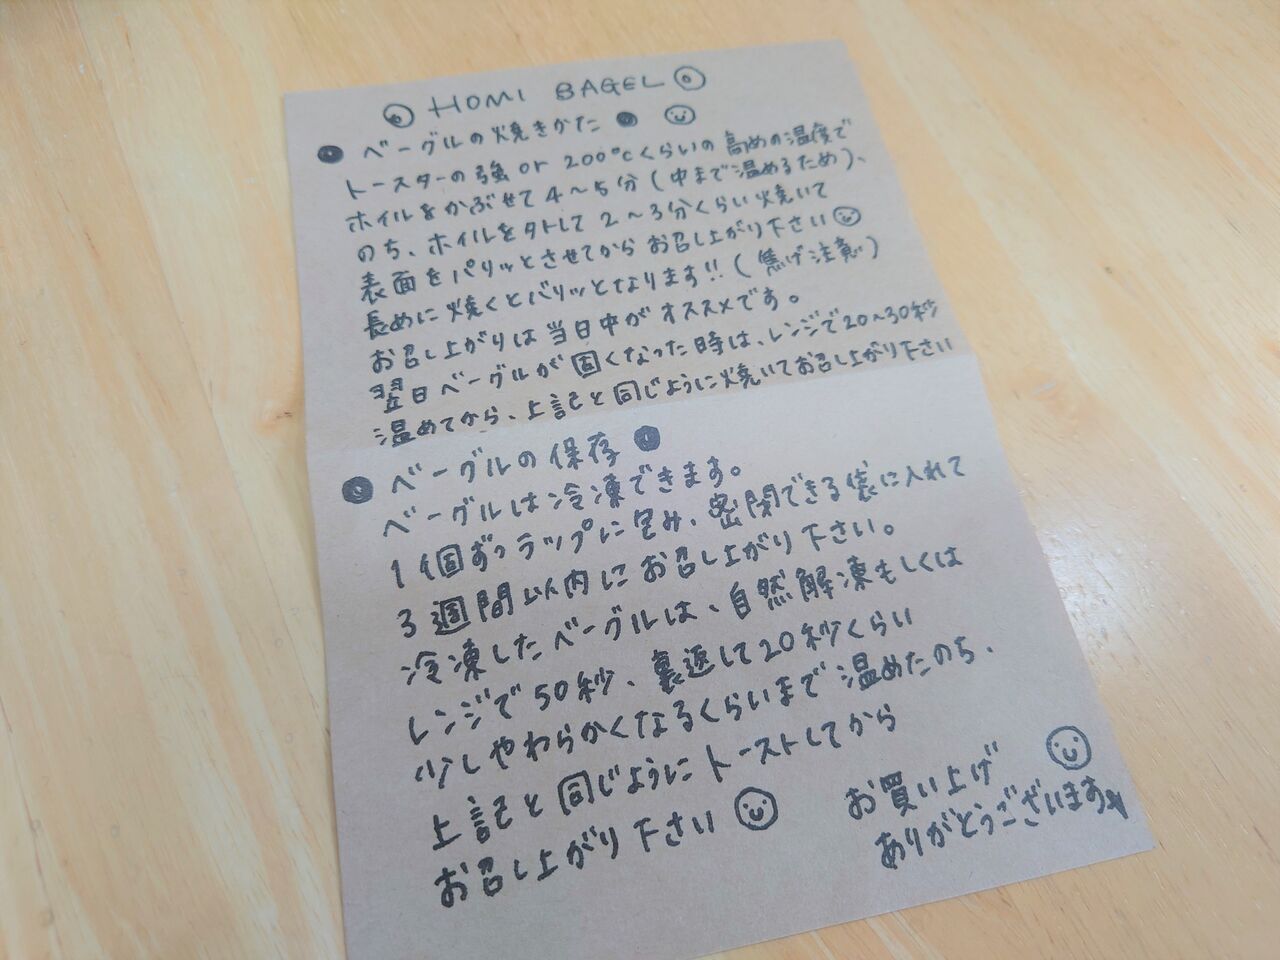 HOMI BAGEL
ベーグルの焼きかた
トースターの強 or 200℃くらいの高めの温度で
ホイルをかぶせて4〜5分(中まで温めるため)、
のち、ホイルを外して2〜3分くらい焼いて
表面をパリッとさせてからお召し上がり下さい
長めに焼くとバリッとなります!!(焦げ注意)
お召し上がりは当日中がオススメです。
翌日ベーグルが固くなった時は、レンジで20〜30秒
温めてから、上記と同じように焼いてお召し上がり下さい
ベーグルの保存
ベーグルは冷凍できます。
1個ずつラップに包み、密閉できる袋に入れて
3週間以内にお召し上がり下さい。
冷凍したベーグルは、自然解凍もしくは
レンジで50秒、裏返して20秒くらい
少しやわらかくなるくらいまで温めたのち、
上記と同じようにトーストしてから
お召し上がり下さい
お買い上げ
ありがとうございます